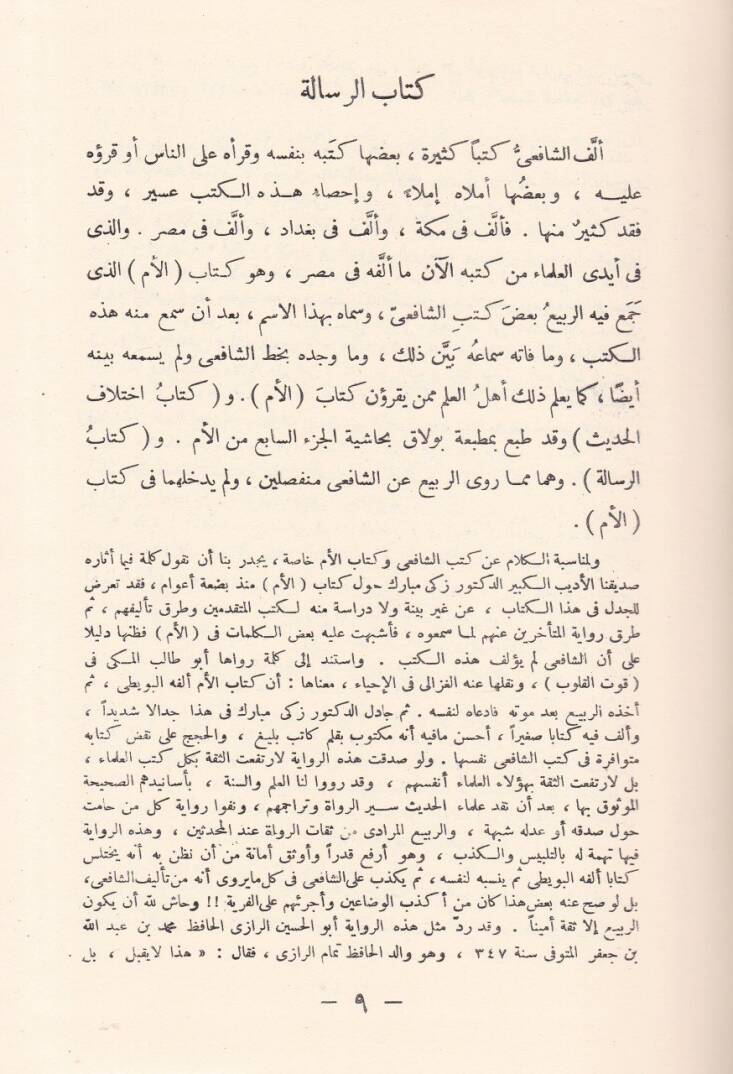 كتاب الرسالة
ألَّف الشافعيُّ كتباً كثيرة ، بعضها كتَبه بنفسه وقرأه على الناس أو قرؤه
عليه ، وبعضُها أملاه إملاءً ، وإحصاء هذه الكتب عسير ، وقد
فقد كثيرٌ منها . فألَّف فى مكة ، وألَّف فى بغداد ، وألَّف فى مصر . والذى
فى أيدى العلماء من كتبه الآن ما ألَّفه فى مصر ، وهو كتاب ( الأم ) الذى
جَمَع فيه الربيعُ بعضَ كتبِ الشافعىّ ، وسماه بهذا الاسم ، بعد أن سمع منه هذه
الكتب ، وما فاته سماعُه بَيَّن ذلك ، وما وجده بخط الشافعى ولم يسمعه بينه
أيضًا ، كما يعلم ذلك أهلُ العلم ممن يقرؤن كتابَ ( الأم ) . و ( كتابُ اختلاف
الحديث ) وقد طبع بمطبعة بولاق بحاشية الجزء السابع من الأم . و ( كتابُ
الرسالة ) . وهما مما روى الربيع عن الشافعى منفصلين ، ولم يدخلهما فى كتاب
( الأم ) .
ولمناسبة الكلام عن كتب الشافعى وكتاب الأم خاصة ، يجدر بنا أن نقول كلمة فيما أثاره
صديقنا الأديب الكبير الدكتور زكى مبارك حول كتاب ( الأم ) منذ بضعة أعوام ، فقد تعرض
للجدل فى هذا الكتاب ، عن غير بينة ولا دراسة منه لكتب المتقدمين وطرق تأليفهم ، ثم
طرق رواية المتأخرين عنهم لما سمعوه ، فأشبهت عليه بعض الكلمات فى ( الأم ) فظنها دليلا
على أن الشافعى لم يؤلف هذه الكتب . واستند إلى كلمة رواها أبو طالب المكى فى
( قوت القلوب ) ، ونقلها عنه الغزالى فى الإحياء ، معناها : أن كتاب الأم ألفه البويطى ، ثم
أخذه الربيع بعد موته فادعاه لنفسه . ثم جادل الدكتور زكى مبارك فى هذا جدالا شديداً ،
وألف فيه كتابا صغيراً ، أحسن مافيه أنه مكتوب بقلم كاتب بليغ ، والحجج على نقض كتابه
متوافرة فى كتب الشافعى نفسها . ولو صدقت هذه الرواية لارتفعت الثقة بكل كتب العلماء ،
بل لارتفعت الثقة بهؤلاء العلماء أنفسهم ، وقد رووا لنا العلم والسنة ، بأسانيدهم الصحيحة
الموثوق بها ، بعد أن نقد علماء الحديث سير الرواة وتراجمهم ، ونفوا رواية كل من حامت
حول صدقه أو عدله شبهة ، والربيع المرادى من ثقات الرواة عند المحدثين ، وهذه الرواية
فيها تهمة له بالتلبيس والكذب ، وهو أرفع قدراً وأوثق أمانة من أن نظن به أنه يختلس
كتابا ألفه البويطى ثم ينسبه لنفسه ، ثم يكذب على الشافعى فى كل مايروى أنه من تأليف الشافعى،
بل لو صح عنه بعض هذا كان من أكذب الوضاعين وأجرئهم على الفرية !! وحاش لله أن يكون
الربيع إلا ثقة أميناً . وقد ردّ مثل هذه الرواية أبو الحسين الرازى الحافظ محمد بن عبد الله
بن جعفر المتوفى سنة ٣٤٧ ، وهو والد الحافظ تمام الرازى ، فقال : « هذا لايقبل ، بل
— ٩ —